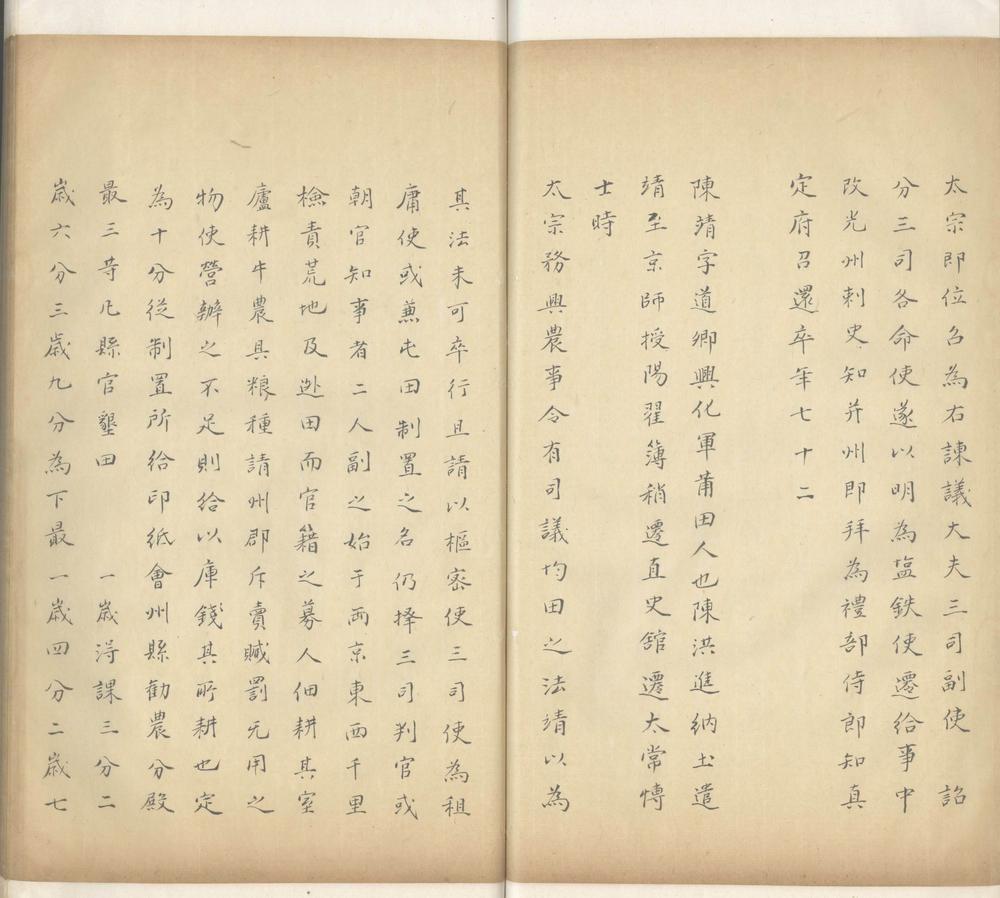 太宗即位召為右諫議大夫三司副使　詔
分三司各命使遂以明為盐鉄使遷給事中
改光州刺史知并州即拜為禮部侍郎知真
定府召還卒年七十二
陳靖字道卿興化軍莆田人也陳洪進納土遣
靖至京師授陽翟簿稍遷直史舘遷太常愽
士時
太宗務興農事令有司議均田之法靖以為
其法未可卒行且請以樞宻使三司使為租
庸使或蒹屯田制置之名仍擇三司判官或
朝官知事者二人副之始于両京東西千里
檢責荒地及逃田而官籍之募人佃耕其室
廬耕牛農具粮種請州郡斥賣贓罰无用之
物使營辦之不足則给以庫錢其所耕也定
為十分從制置所給印紙會州縣勧農分殿
最三等凡縣官墾田　一歳淂課三分二
歳六分三歳九分為下最　一歳四分二歳七